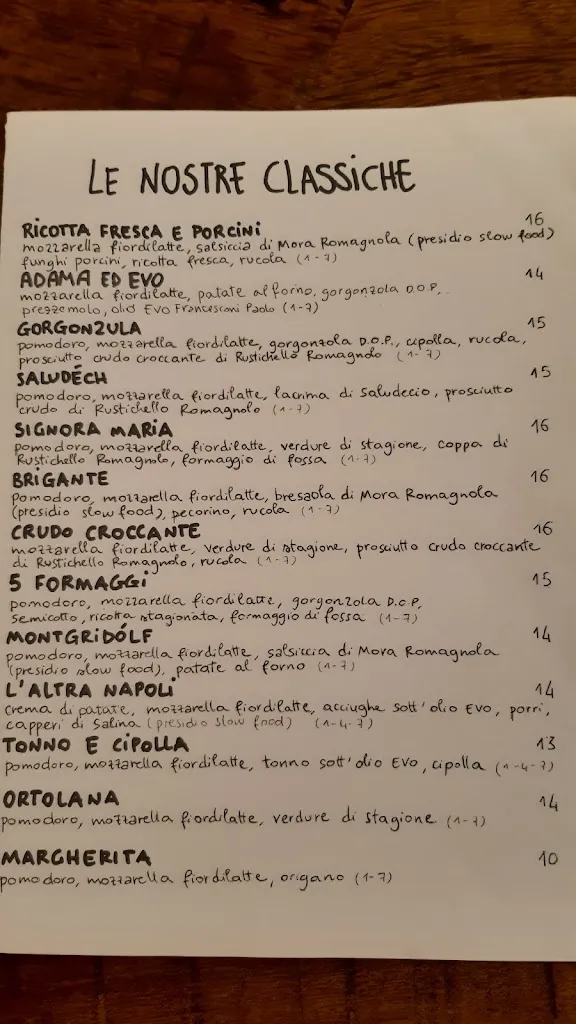 LE NOSTRE CLASSICHE
RICOTTA FRESCA E PORCINI 16
mozzarella fiordilatte, salsiccia di Mora Romagnola (presidio slow food)
funghi porcini, ricotta fresca, rucola (1-7)
ADAMA ED EVO 14
mozzarella fiordilatte, patate al forno, gorgonzola D.O.P.,
prezzemolo, olio EVO Francesconi Paolo (1-7)
GORGONZULA 15
pomodoro, mozzarella fiordilatte, gorgonzola D.O.P., cipolla, rucola,
prosciutto crudo croccante di Rustichello Romagnolo (1-7)
SALUDÉCH 15
pomodoro, mozzarella fiordilatte, lacrima di Saludecio, prosciutto
crudo di Rustichello Romagnolo (1-7)
SIGNORA MARIA 16
pomodoro, mozzarella fiordilatte, verdure di stagione, coppa di
Rustichello Romagnolo, formaggio di fossa (1-7)
BRIGANTE 16
pomodoro, mozzarella fiordilatte, bresaola di Mora Romagnola
(presidio slow food), pecorino, rucola (1-7)
CRUDO CROCCANTE 16
mozzarella fiordilatte, verdure di stagione, prosciutto crudo croccante
di Rustichello Romagnolo, rucola (1-7)
5 FORMAGGI 15
pomodoro, mozzarella fiordilatte, gorgonzola D.O.P,
semicotto, ricotta stagionata, formaggio di fossa (1-7)
MONTGRIDÓLF 14
pomodoro, mozzarella fiordilatte, salsiccia di Mora Romagnola
(presidio slow food), patate al forno (1-7)
L'ALTRA NAPOLI 14
crema di patate, mozzarella fiordilatte, acciughe sott'olio EVO, porri,
capperi di Salina (presidio slow food) (1-4-7)
TONNO E CIPOLLA 13
pomodoro, mozzarella fiordilatte, tonno sott'olio EVO, cipolla (1-4-7)
ORTOLANA 14
pomodoro, mozzarella fiordilatte, verdure di stagione (1-7)
MARGHERITA 10
pomodoro, mozzarella fiordilatte, origano (1-7)